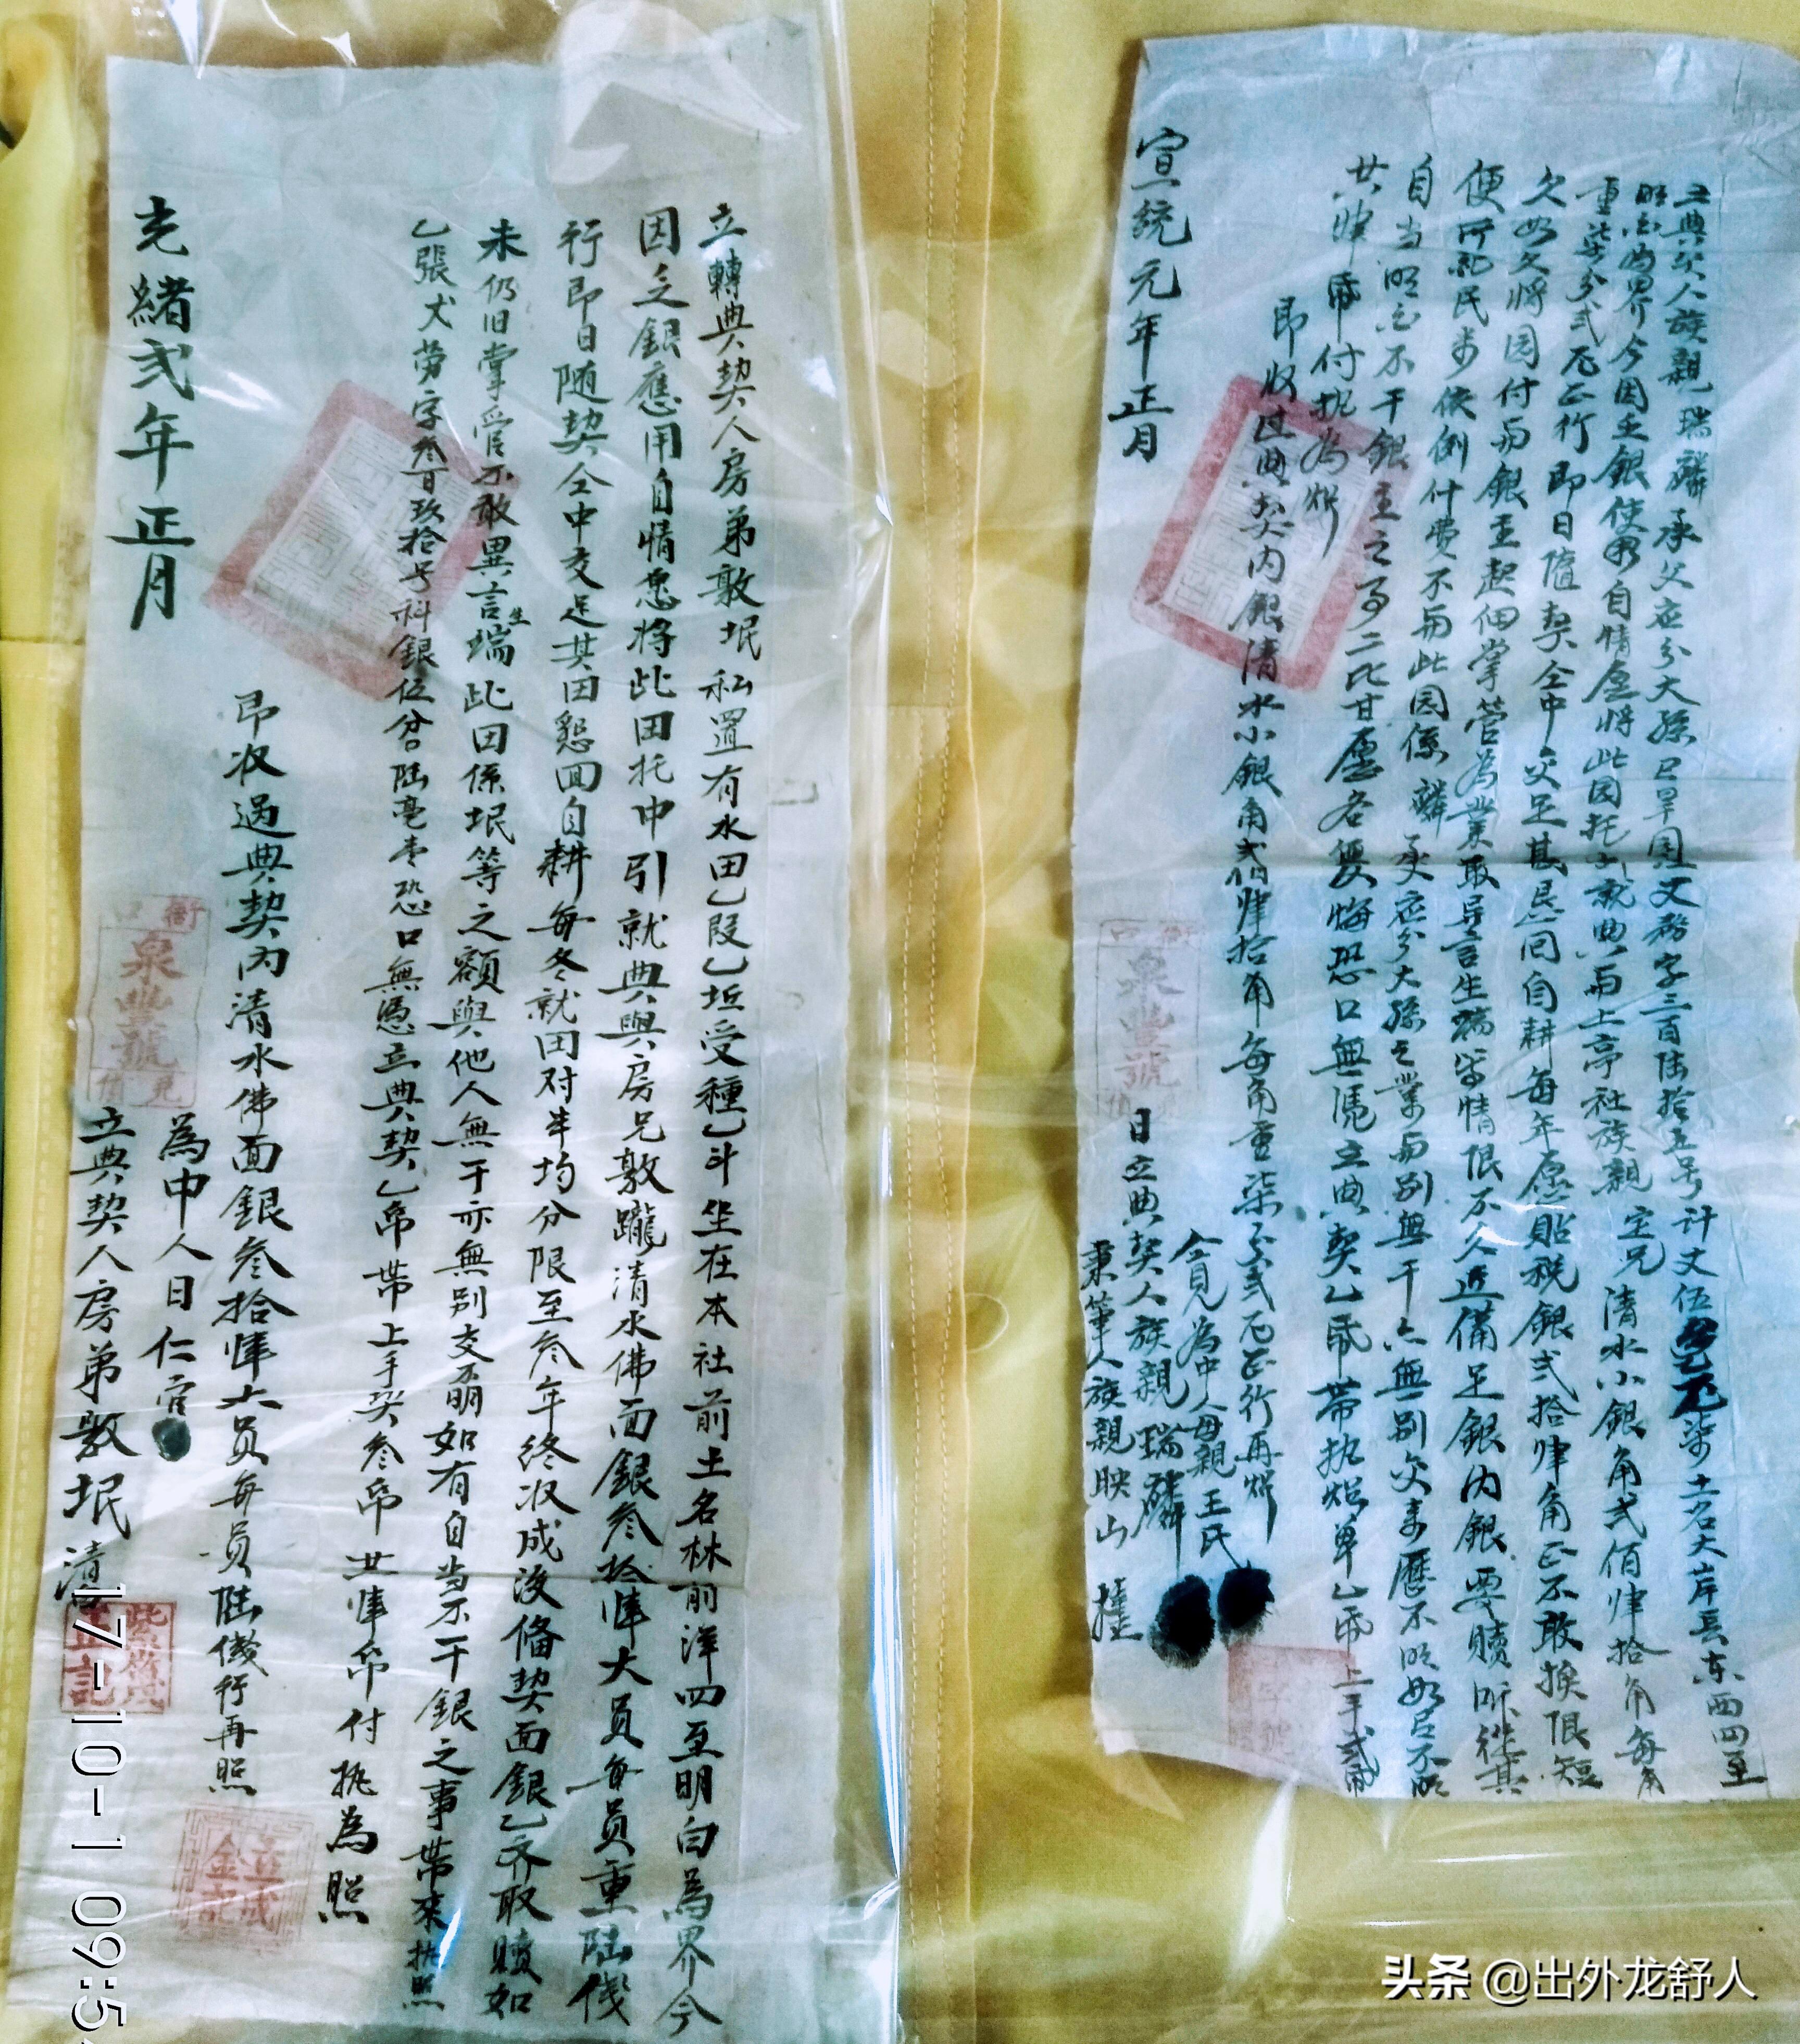 立典契人族親瑞麟承父应分大孫己旱園丈務字三百陆拾五号計丈伍柒土名大岸長东西四至
明白為界今因乏銀使用自情愿将此园托就典与上亭社族親宅兄清水小銀角弍佰肆拾角每角
重柒分弍正行即日隨契仝中交足其园自耕每年愿貼税銀弍拾肆角正不敢挨限短
欠如欠将园付与銀主起佃掌管為業不敢異言生端等情限不久近備足銀内銀要贖听從其
便所配民米依例什費不与此园係麟承应分大孫之業与别無干亦無别交来歷不明如有不明
自当明白不干銀主之事二比甘愿各無悔恐口無憑立典契乙帋带执炤单乙帋上手弍帋
共肆帋付执為炤
即收过典契内銀清水小銀角弍佰肆拾角每角重柒分弍正行再炤
仝見為中人母親王氏
宣統元年正月 日立典契人族親瑞麟
秉筆人族親映山
衙口
泉豐號
立轉典契人房弟敦垊私置有水田乙段乙坵受種乙斗坐在本社前土名林前洋四至明白為界今
因乏銀應用自情愿将此田托中引就典與房兄敦躘清水佛面銀叁拾肆大員每員重陆錢
行即日随契仝中交足其田懇回自耕每冬就田对半均分限至叁年終收成後俻契面銀乙齐取贖如
未仍旧掌管不敢異言生端此田係垊等之額與他人無干亦無别交不明如有自当不干銀之事带來执照
乙張犬劳字叁百玖拾号科銀伍分陆毫恐口無憑立典契乙帋带上手契叁帋共肆帋付执為照
即收過典契内清水佛面銀叁拾肆大員每員陆錢行再照
為中人日仁官
光緒弍年正月
立典契人房弟敦垊
衙口
泉豐號
立成
金記
17-10-1 09:5
头条 @出外龙舒人